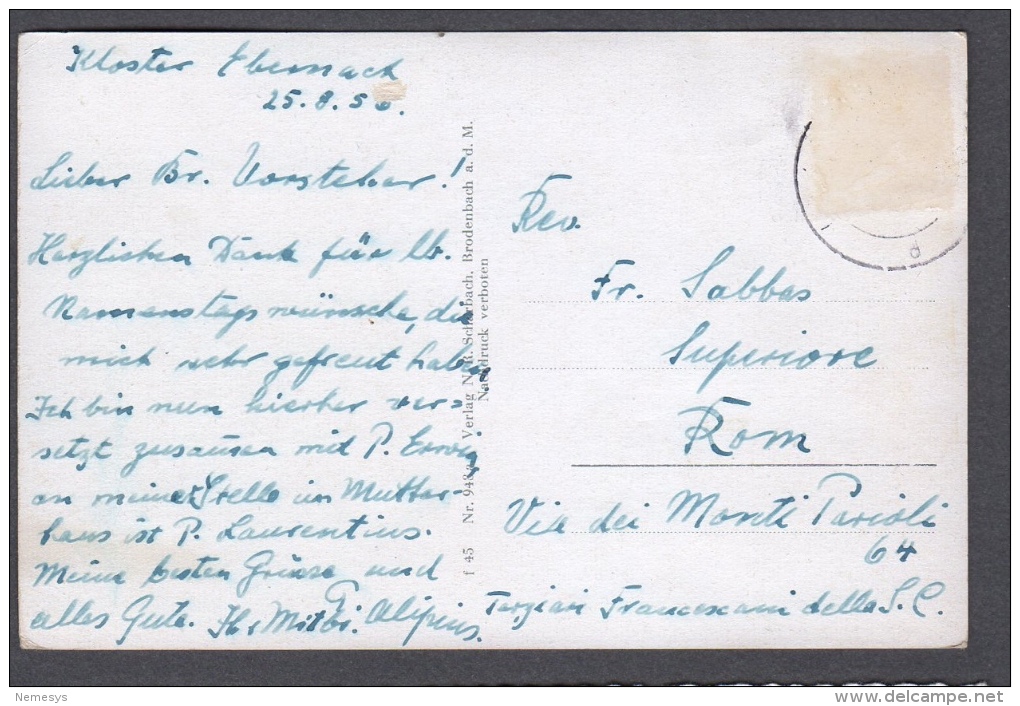 Kloster Ebernach
25.8.56.
Lieber Br. Vorsteher!
Herzlichen Dank für Ihr.
Namenstagswünsche, die
mich sehr gefreut haben
Ich bin nun hierher ver-
setzt zusamen mit P. Erwin
an meiner Stelle im Mutter-
haus ist P. Laurentius.
Meine besten Grüsse und
alles Gute. Ihr Mitbr. P. Alipius.
f 45 Nr. 948 Verlag N. R. Scharbach, Brodenbach a. d. M.
Nachdruck verboten
Rev.
Fr. Sabbas
Superiore
Rom
Via dei Monti Parioli
64
Terziari Francescani della S. C.
d
Nemesys
www.delcampe.net